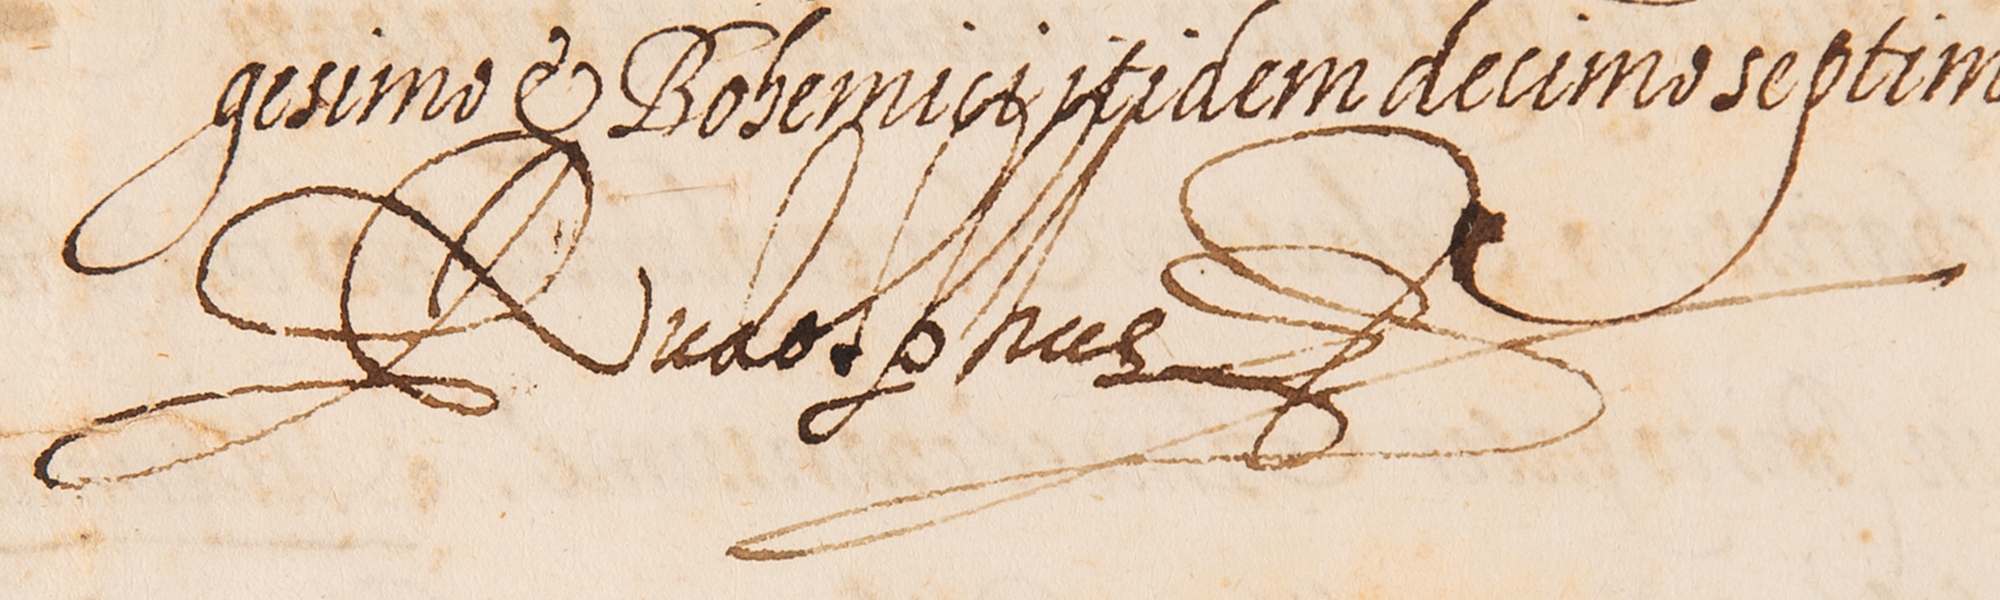 gesimo & Bohemici itidem decimo septim
Rudolphus